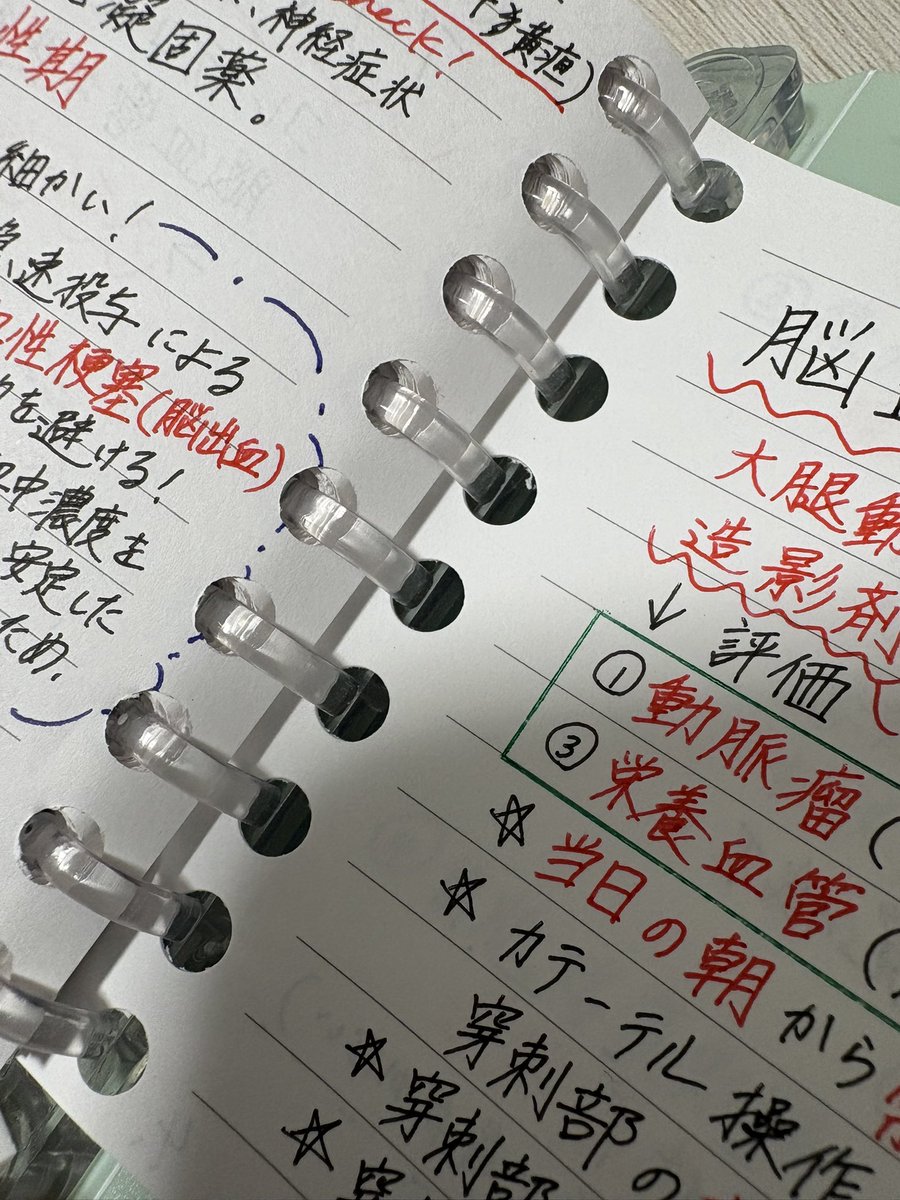 多黄疸)
check!
神経症状
凝固薬。
性期
細かい!
速投与による
性梗塞(脳出血)
を避ける!
中濃度を
安定した
ため.
脳
大腿動
造影剤
↓ 評価
① 動脈瘤 (
③ 栄養血管 (
☆ 当日の朝から
☆ カテーテル操作
穿刺部の
☆ 穿刺部
☆ 穿